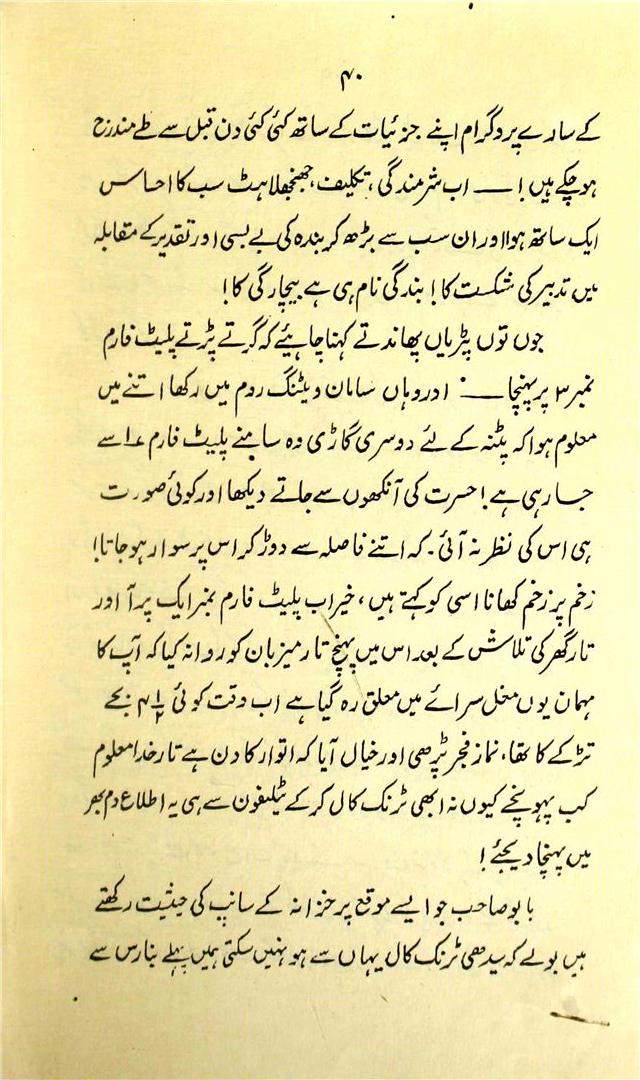 ۴۰
کے سارے پروگرام اپنے جزئیات کے ساتھ کئی کئی دن قبل سے طے مندرج
ہوچکے ہیں! ــــ اب شرمندگی، تکلیف، جھنجھلاہٹ سب کا احساس
ایک ساتھ ہوا اور ان سب سے بڑھ کر بندہ کی بے بسی اور تقدیر کے مقابلہ
میں تدبیر کی شکست کا! بندگی نام ہی ہے بیچارگی کا!
جوں توں پٹریاں پھاندتے کہنا چاہیئے کہ گرتے پڑتے پلیٹ فارم
نمبر ۳ پر پہنچا ــــ اور وہاں سامان ویٹنگ روم میں رکھا اتنے میں
معلوم ہوا کہ پٹنہ کے لئے دوسری گاڑی وہ سامنے پلیٹ فارم ۱ سے
جارہی ہے! حسرت کی آنکھوں سے جاتے دیکھا اور کوئی صورت
ہی اس کی نظر نہ آئی۔ کہ اتنے فاصلہ سے دوڑ کر اس پر سوار ہوجاتا!
زخم پر زخم کھانا اسی کو کہتے ہیں، خیر اب پلیٹ فارم نمبر ایک پر آ اور
تار گھر کی تلاش کے بعد اس میں پہنچ تار میزبان کو روانہ کیا کہ آپ کا
مہمان یوں مغل سرائے میں معلق رہ گیا ہے اب وقت کوئی ۴ ۱/۲ بجے
تڑکے کا تھا، نماز فجر پڑھی اور خیال آیا کہ اتوار کا دن ہے تار خدا معلوم
کب پہونچے کیوں نہ ابھی ٹرنک کال کرکے ٹیلیفون سے ہی یہ اطلاع دم بھر
میں پہنچا دیجئے!
بابو صاحب جو ایسے موقع پر خزانہ کے سانپ کی حیثیت رکھتے
ہیں بولے کہ سیدھی ٹرنک کال یہاں سے ہو نہیں سکتی ہمیں پہلے بنارس سے